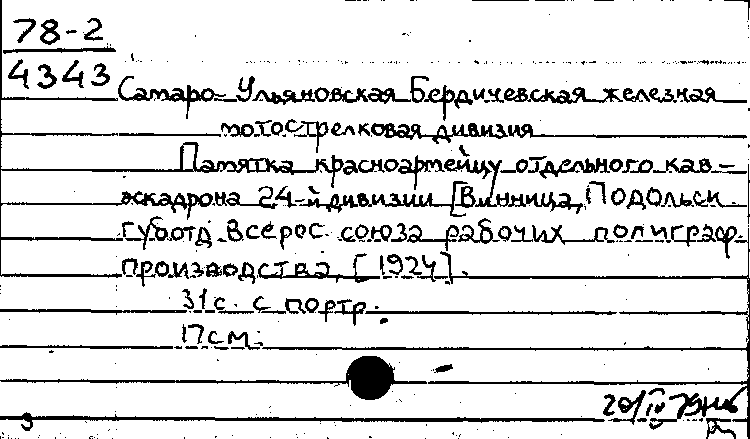 78-2
4343
Самаро-Ульяновская Бердичевская железная
мотострелковая дивизия
Памятка красноармейцу отдельного кав-
эскадрона 24-й дивизии [Винница, Подольск.
губотд. Всерос. союза рабочих полиграф.
производства, [1924].
31с. с портр.
17см.
20/IV 79